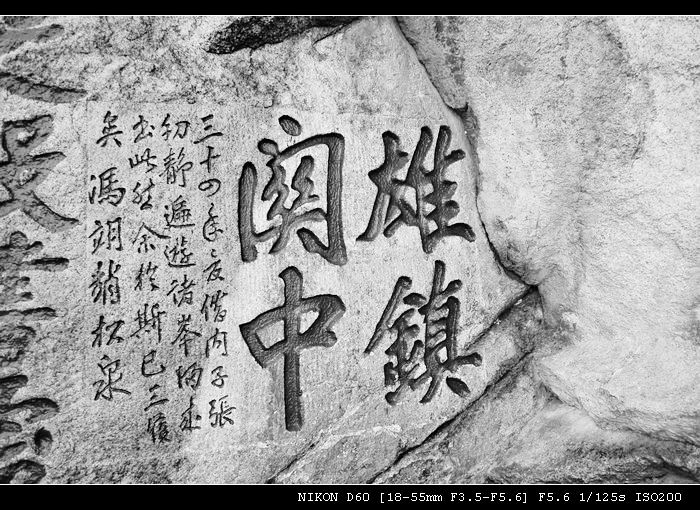 雄鎮
関中
三十四年夏偕内子張
初靜遍遊諸峯
此然余於斯已三
矣 馮翊 松泉
NIKON D60 [18-55mm F3.5-F5.6] F5.6 1/125s ISO200